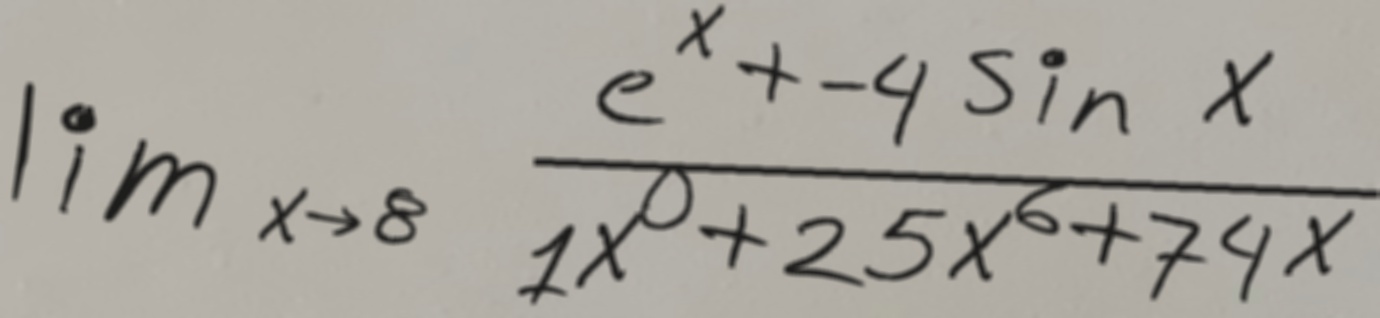 \lim_{x \to 8} \frac{e^x + -4 \sin x}{1x^0 + 25x^6 + 74x}